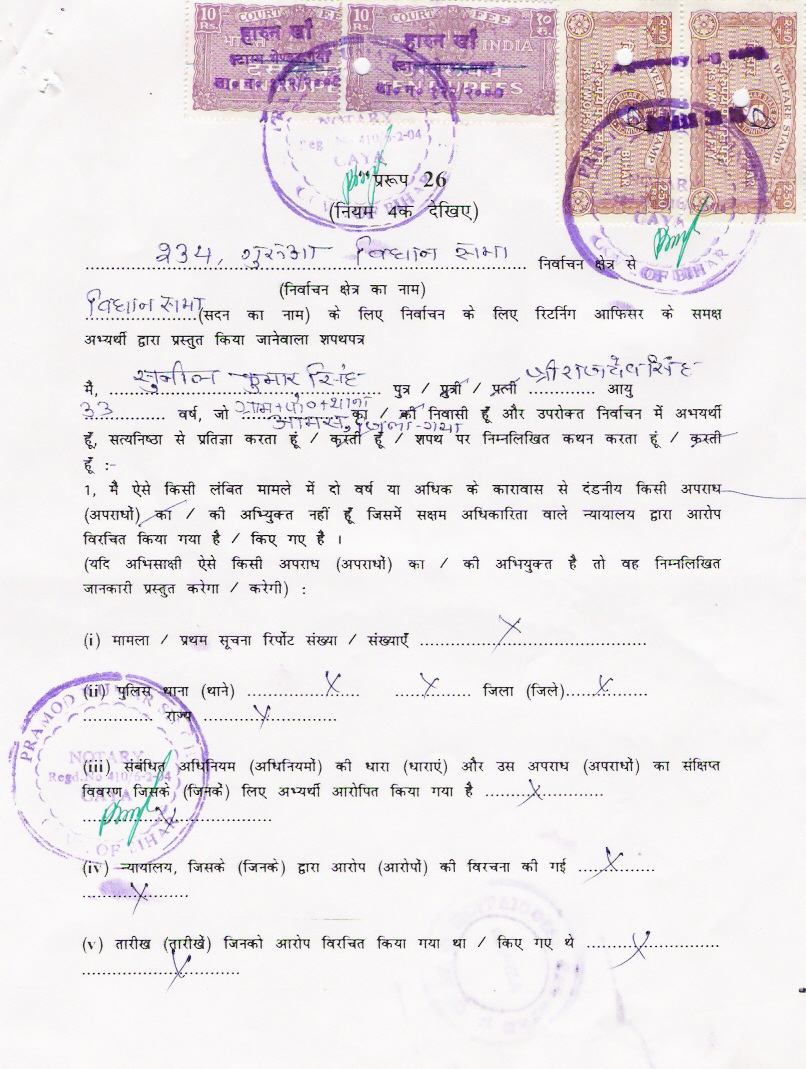 10 COURT FEE 10 COURT FEE १० रु.
Rs. Rs. INDIA
हारुन खाँ हारुन खाँ
WELFARE STAMP
BIHAR
NOTARY
Regd. No 410/6-2-04
GAYA
प्ररूप 26
(नियम 4क देखिए)
234, गुरुआ विधान सभा निर्वाचन क्षेत्र से
(निर्वाचन क्षेत्र का नाम)
विधान सभा (सदन का नाम) के लिए निर्वाचन के लिए रिटर्निंग आफिसर के समक्ष
अभ्यर्थी द्वारा प्रस्तुत किया जानेवाला शपथपत्र
मै, सुनील कुमार सिंह पुत्र / पुत्री / पत्नी श्री राजदेव सिंह आयु
33 वर्ष, जो ग्राम+पो०+थाना का / की निवासी हूँ और उपरोक्त निर्वाचन में अभयर्थी
आमस, जिला-गया
हूँ, सत्यनिष्ठा से प्रतिज्ञा करता हूं / करती हूँ / शपथ पर निम्नलिखित कथन करता हूं / करती
हूँ :-
1, मै ऐसे किसी लंबित मामले में दो वर्ष या अधिक के कारावास से दंडनीय किसी अपराध
(अपराधों) का / की अभ्युक्त नहीं हूँ जिसमें सक्षम अधिकारिता वाले न्यायालय द्वारा आरोप
विरचित किया गया है / किए गए है ।
(यदि अभिसाक्षी ऐसे किसी अपराध (अपराधों) का / की अभियुक्त है तो वह निम्नलिखित
जानकारी प्रस्तुत करेगा / करेगी) :
(i) मामला / प्रथम सूचना रिर्पोट संख्या / संख्याएँ X
(ii) पुलिस थाना (थाने) X X जिला (जिले) X
राज्य X
PRAMOD KUMAR
NOTARY
Regd.No 410/6-2-04
GAYA
OF BIHAR
(iii) संबंधित अधिनियम (अधिनियमों) की धारा (धाराएं) और उस अपराध (अपराधों) का संक्षिप्त
विवरण जिसके (जिनके) लिए अभ्यर्थी आरोपित किया गया है X
X
(iv) न्यायालय, जिसके (जिनके) द्वारा आरोप (आरोपों) की विरचना की गई X
X
(v) तारीख (तारीखें) जिनको आरोप विरचित किया गया था / किए गए थे X
X